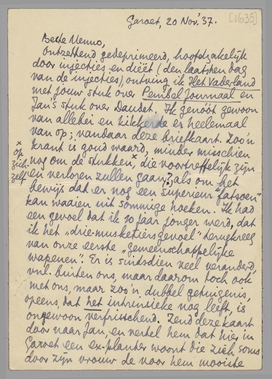 Garoet, 20 Nov. '37.
[1633]
Beste Menno,
Ontzettend gedeprimeerd, hoofdzakelijk
door injecties en dieët (den laatsten dag
van de injecties), ontving ik Het Vaderland
met jouw stuk over Pembel Journaal en
Jan's stuk over Daudet. Ik genoot gewoon
van allebei en kikkerde er heelemaal
van op; vandaar deze briefkaart. Zoo'n
krant is goud waard, minder misschien
nog om de stukken × die voortreffelijk zijn
× op zich zelf
en verloren zullen gaan, als om het
bewijs dat er nog een superieur "fatsoen"
kan waaien uit sommige hoeken. Ik had
een gevoel dat ik 10 jaar jonger werd, dat
ik het "drie-musketiersgevoel" terugkreeg
van onze eerste "gemeenschappelijke
wapenen". Er is sindsdien veel veranderd,
veel buiten ons, maar daarom toch ook
met ons, maar zoo'n dubbel getuigenis,
opeens, dat het intrinsieke nog leeft, is
ongewoon verfrisschend. Zend deze kaart
door naar Jan, en vertel hem dat hier in
Garoet een ex-planter woont die zich soms
door zijn vrouw de voor hem mooiste